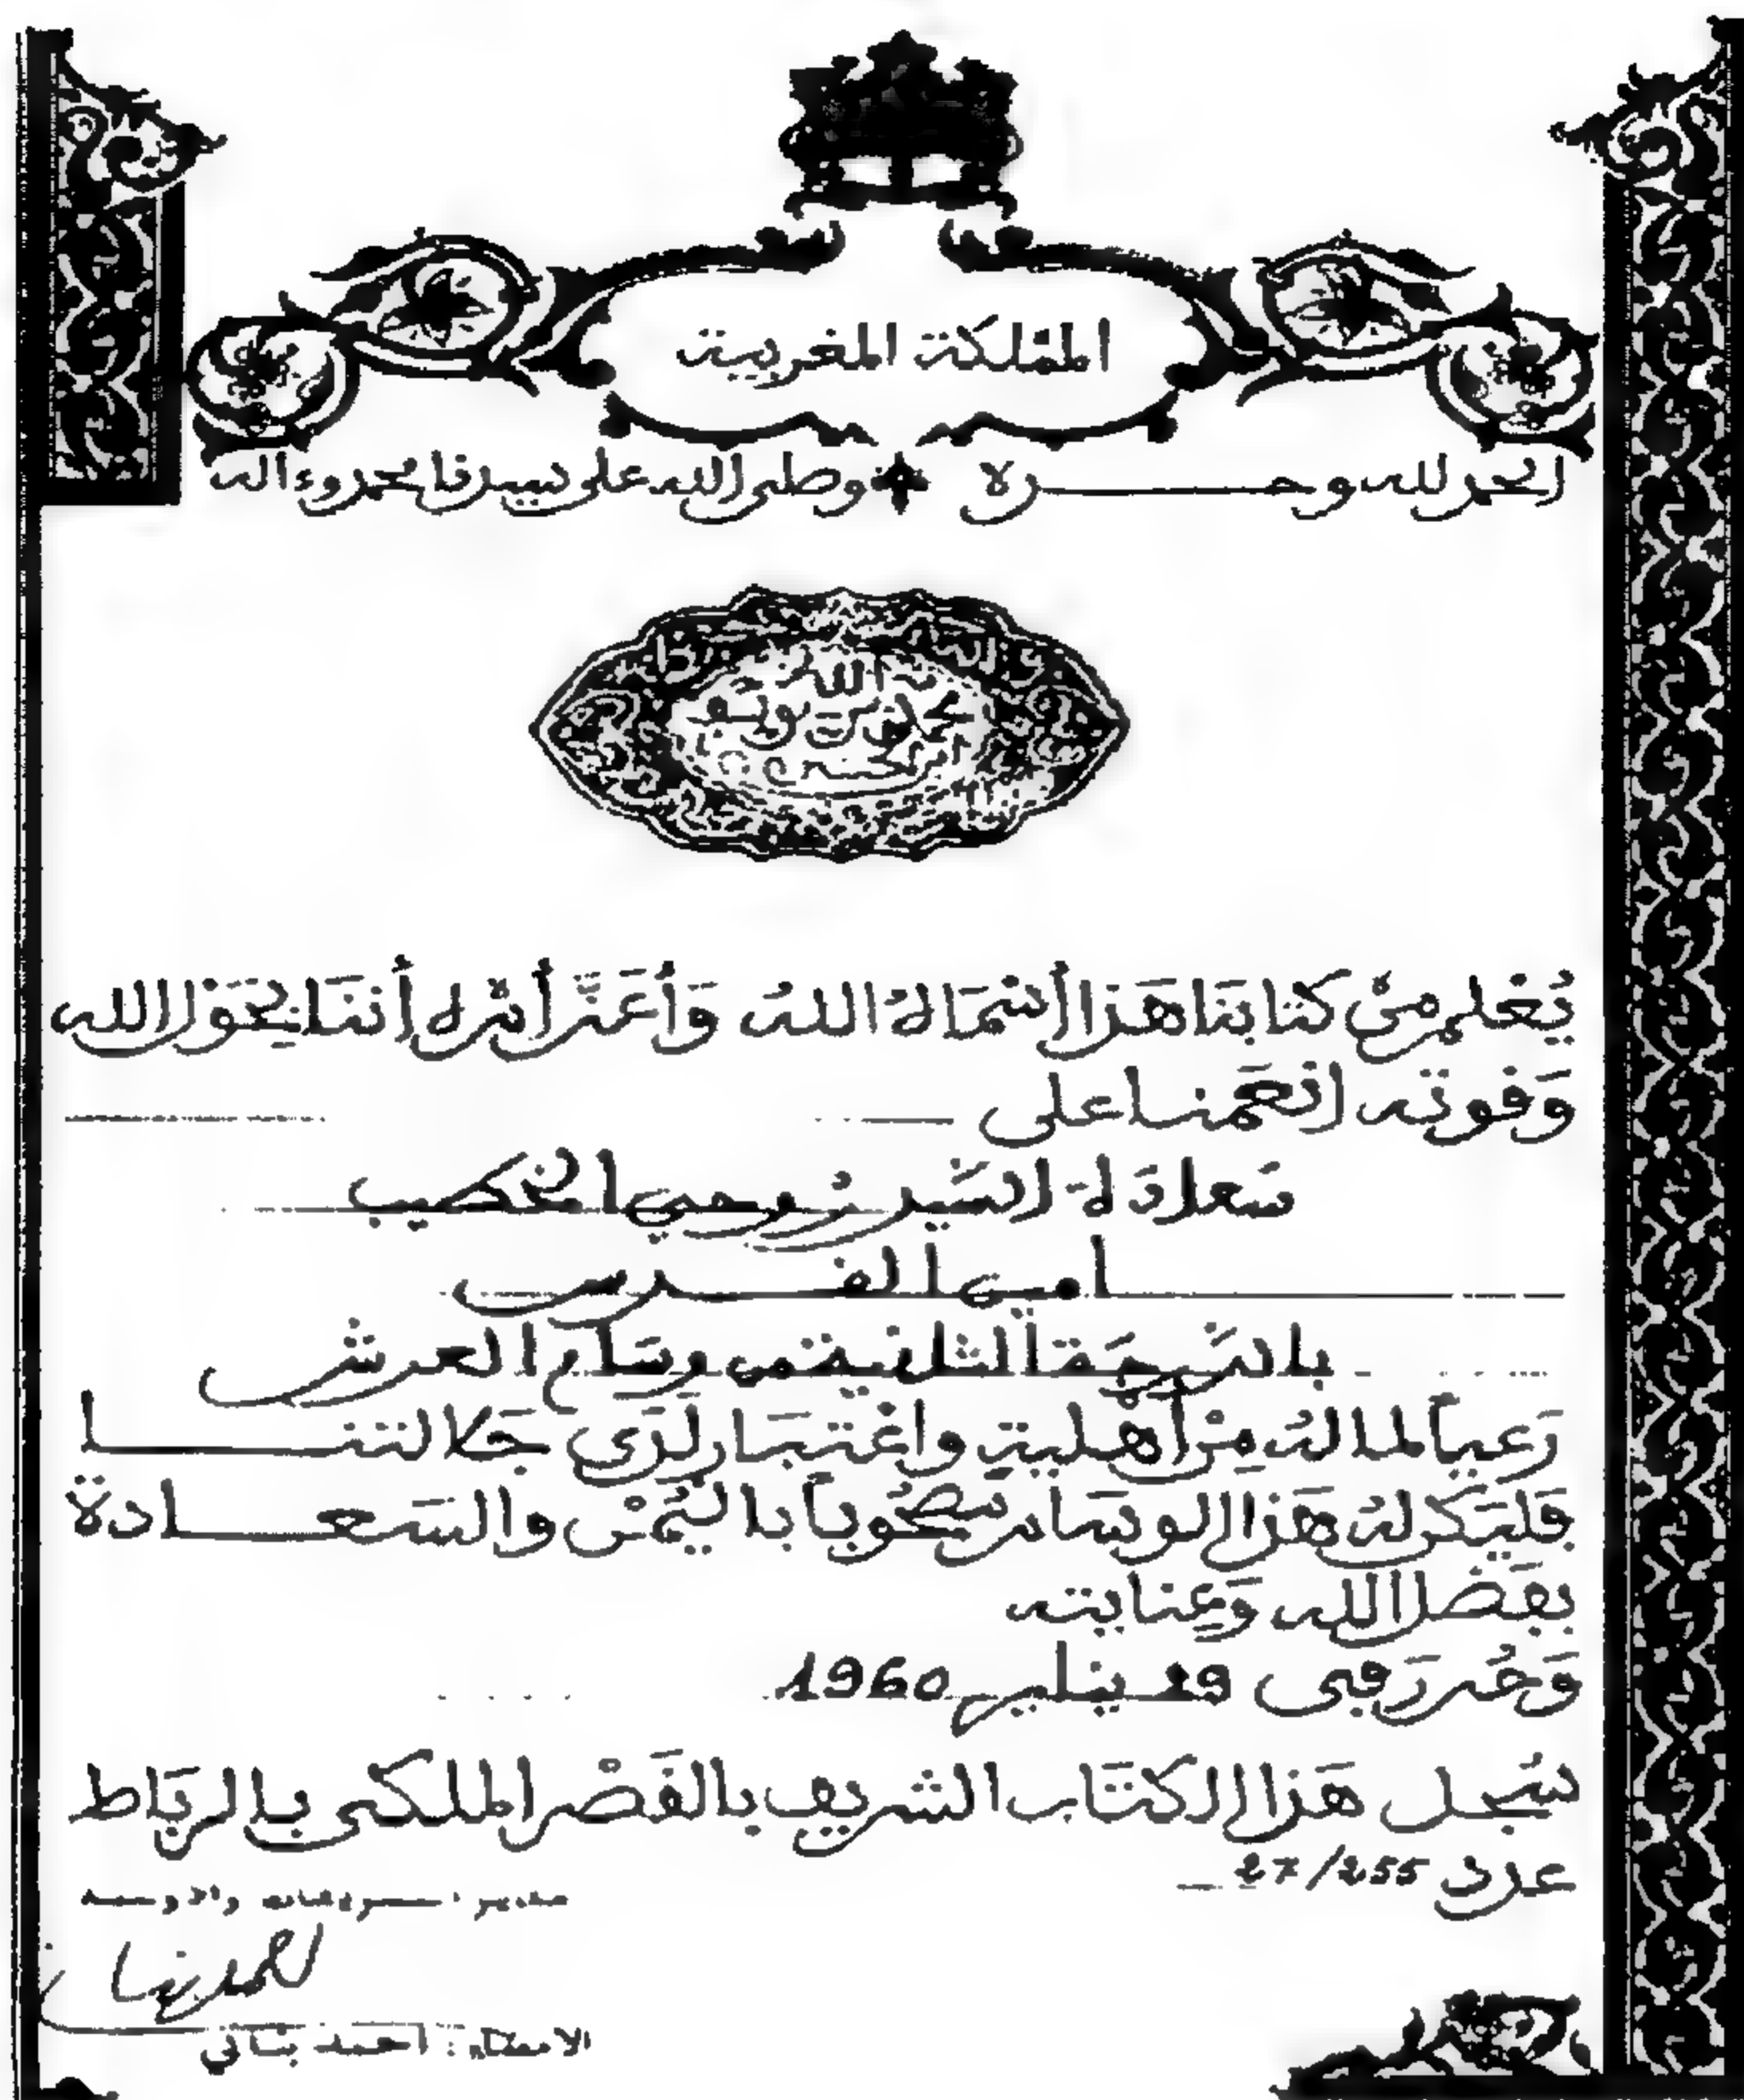 المملكة المغربية
الحمد لله وحده وصلى الله على سيدنا محمد وءاله
محمد بن يوسف
يُعْلم من كتابنا هذا أسماه الله وأعز أمره أننا بحول الله
وقوته أنعمنا على
سعادة السيد روحي الخطيب
أمين القدس
بالدرجة الثانية من وسام العرش
رعياً لما له من أهلية واعتبار لدى جلالتنا
فليكن له هذا الوسام مصحوباً باليمن والسعادة
بفضل الله وعنايته
وحرر في 19 يناير 1960
سجل هذا الكتاب الشريف بالقصر الملكي بالرباط
عدد 27/255
مدير التشريفات والاوسمة
الامضاء: احمد بناني